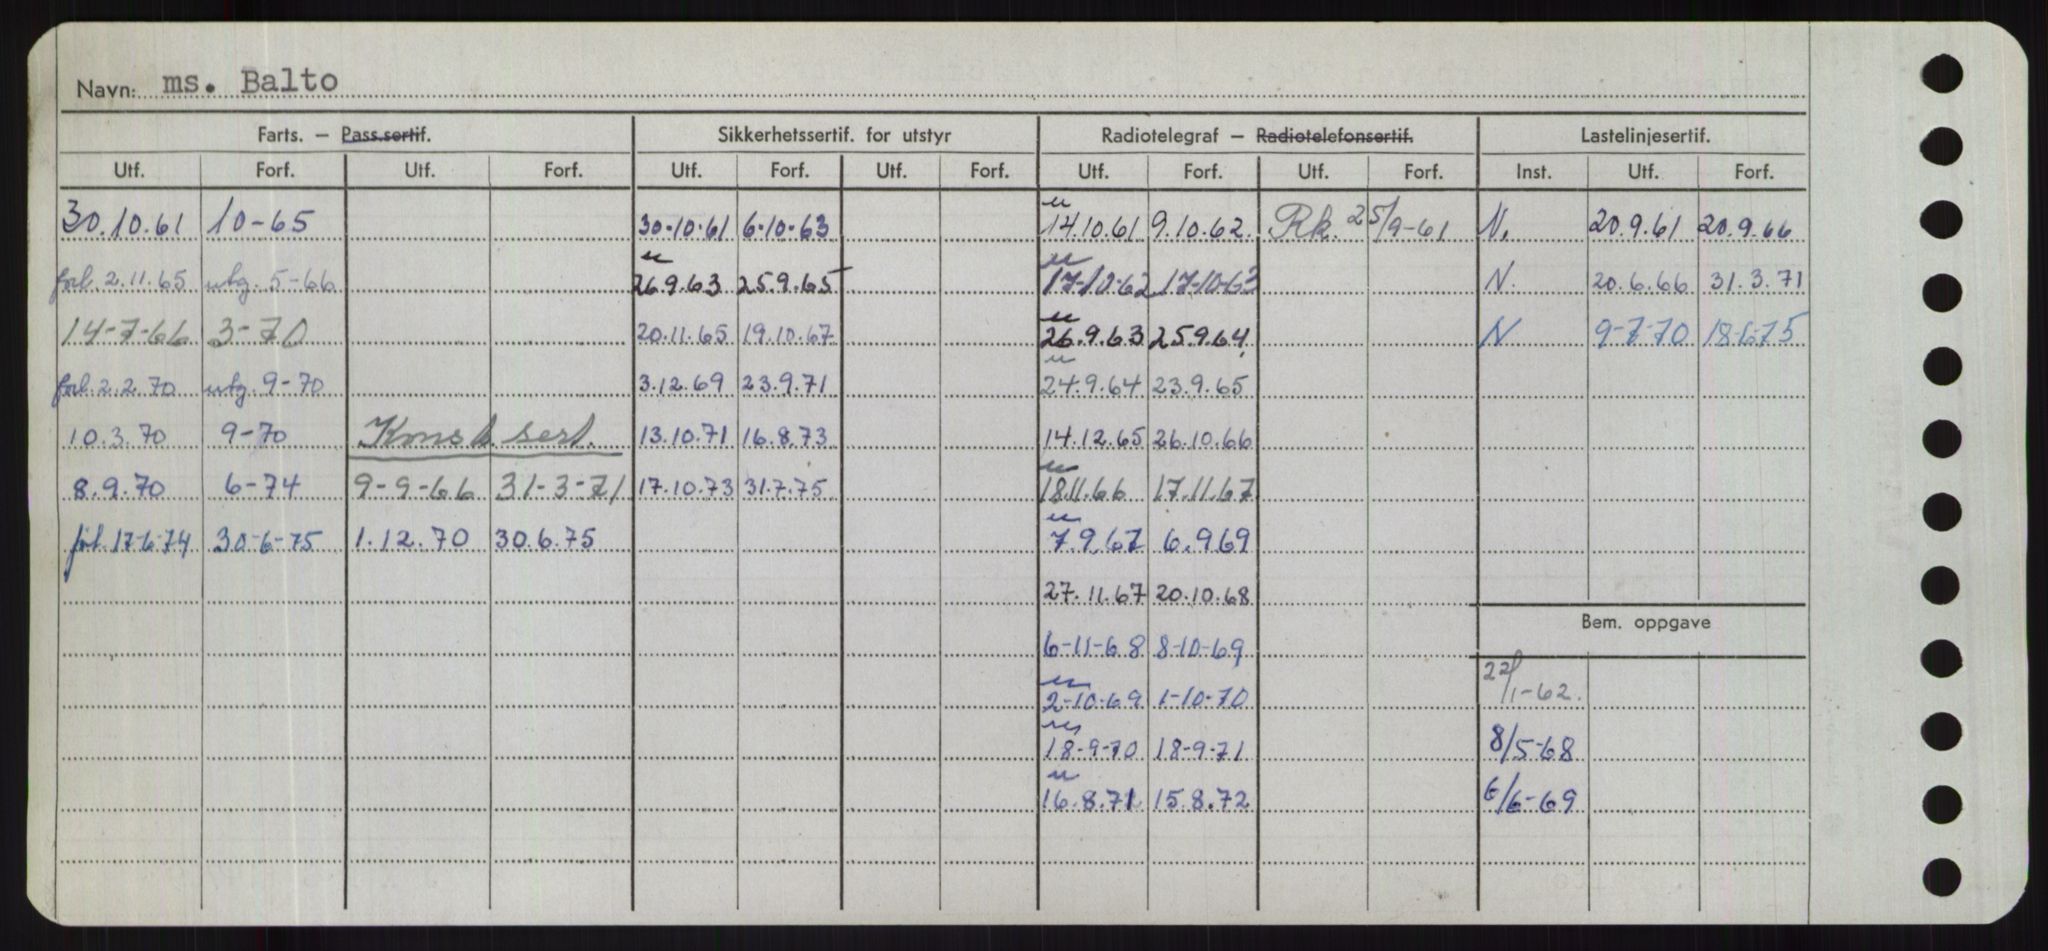 Navn: ms. Balto
Farts. — Pass.sertif. Sikkerhetssertif. for utstyr Radiotelegraf — Radiotelefonsertif. Lastelinjesertif.
Utf. Forf. Utf. Forf. Utf. Forf. Utf. Forf. Utf. Forf. Utf. Forf. Inst. Utf. Forf.
30.10.61 10-65 30.10.61 6.10.63 u 14.10.61 9.10.62. Rk. 25/9-61 N. 20.9.61 20.9.66
forl. 2.11.65 utg. 5-66 u 26.9.63 25.9.65 u 17-10-62 17-10-63 N. 20.6.66 31.3.71
14-7-66 3-70 20.11.65 19.10.67 u 26.9.63 25.9.64 N 9-7-70 18-6-75
forl. 2.2.70 utg. 9-70 3.12.69 23.9.71 u 24.9.64 23.9.65
10.3.70 9-70 Konst. sert. 13.10.71 16.8.73 14.12.65 26.10.66
8.9.70 6-74 9-9-66 31-3-71 17.10.73 31.7.75 u 18.11.66 17.11.67
forl. 17-6-74 30-6-75 1.12.70 30.6.75 u 7.9.67 6.9.69
27.11.67 20.10.68
Bem. oppgave
6-11-68 8-10-69
22/1-62.
u 2-10-69 1-10-70
18-9-70 18-9-71 8/5-68
u 16.8.71 15.8.72 6/6-69